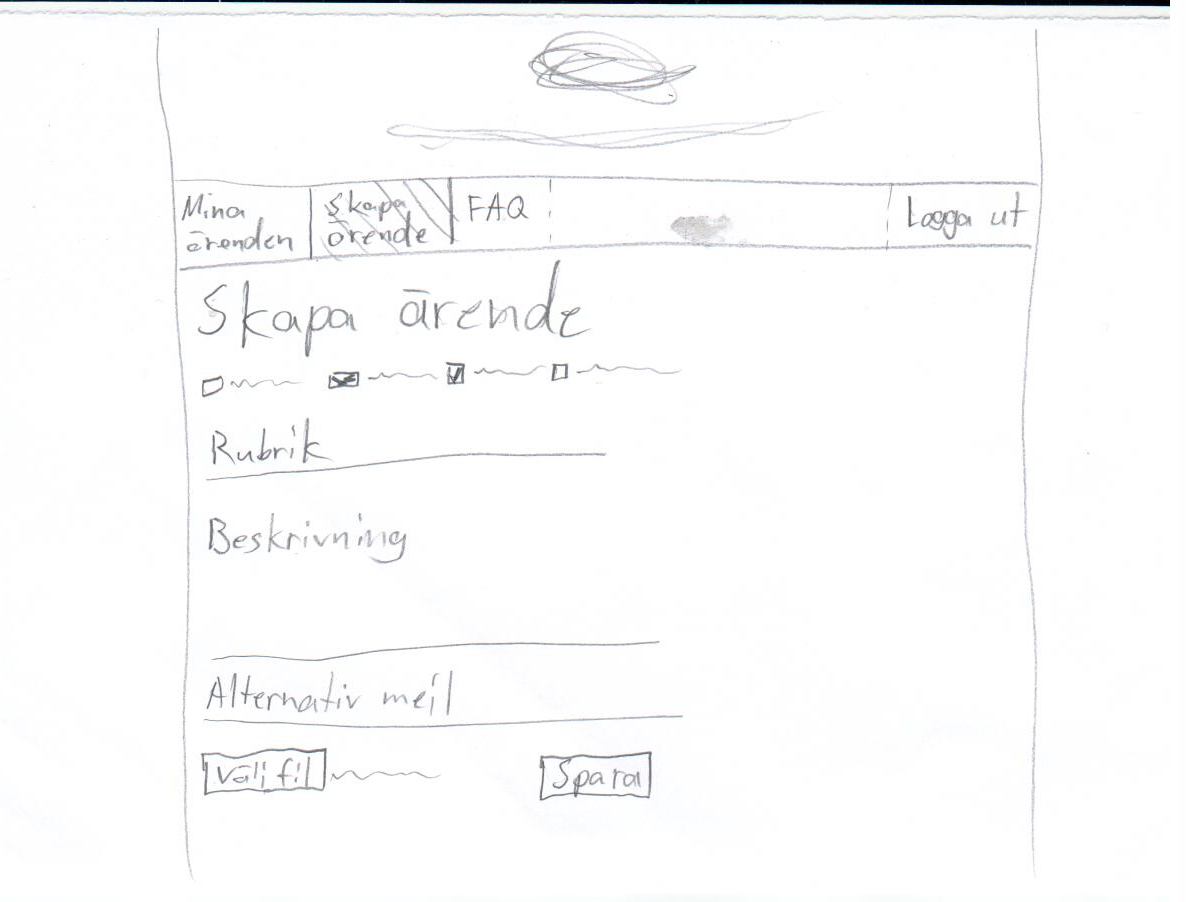 Mina
ärenden
Skapa
ärende
FAQ
Logga ut
Skapa ärende
Rubrik
Beskrivning
Alternativ mejl
Välj fil
Spara